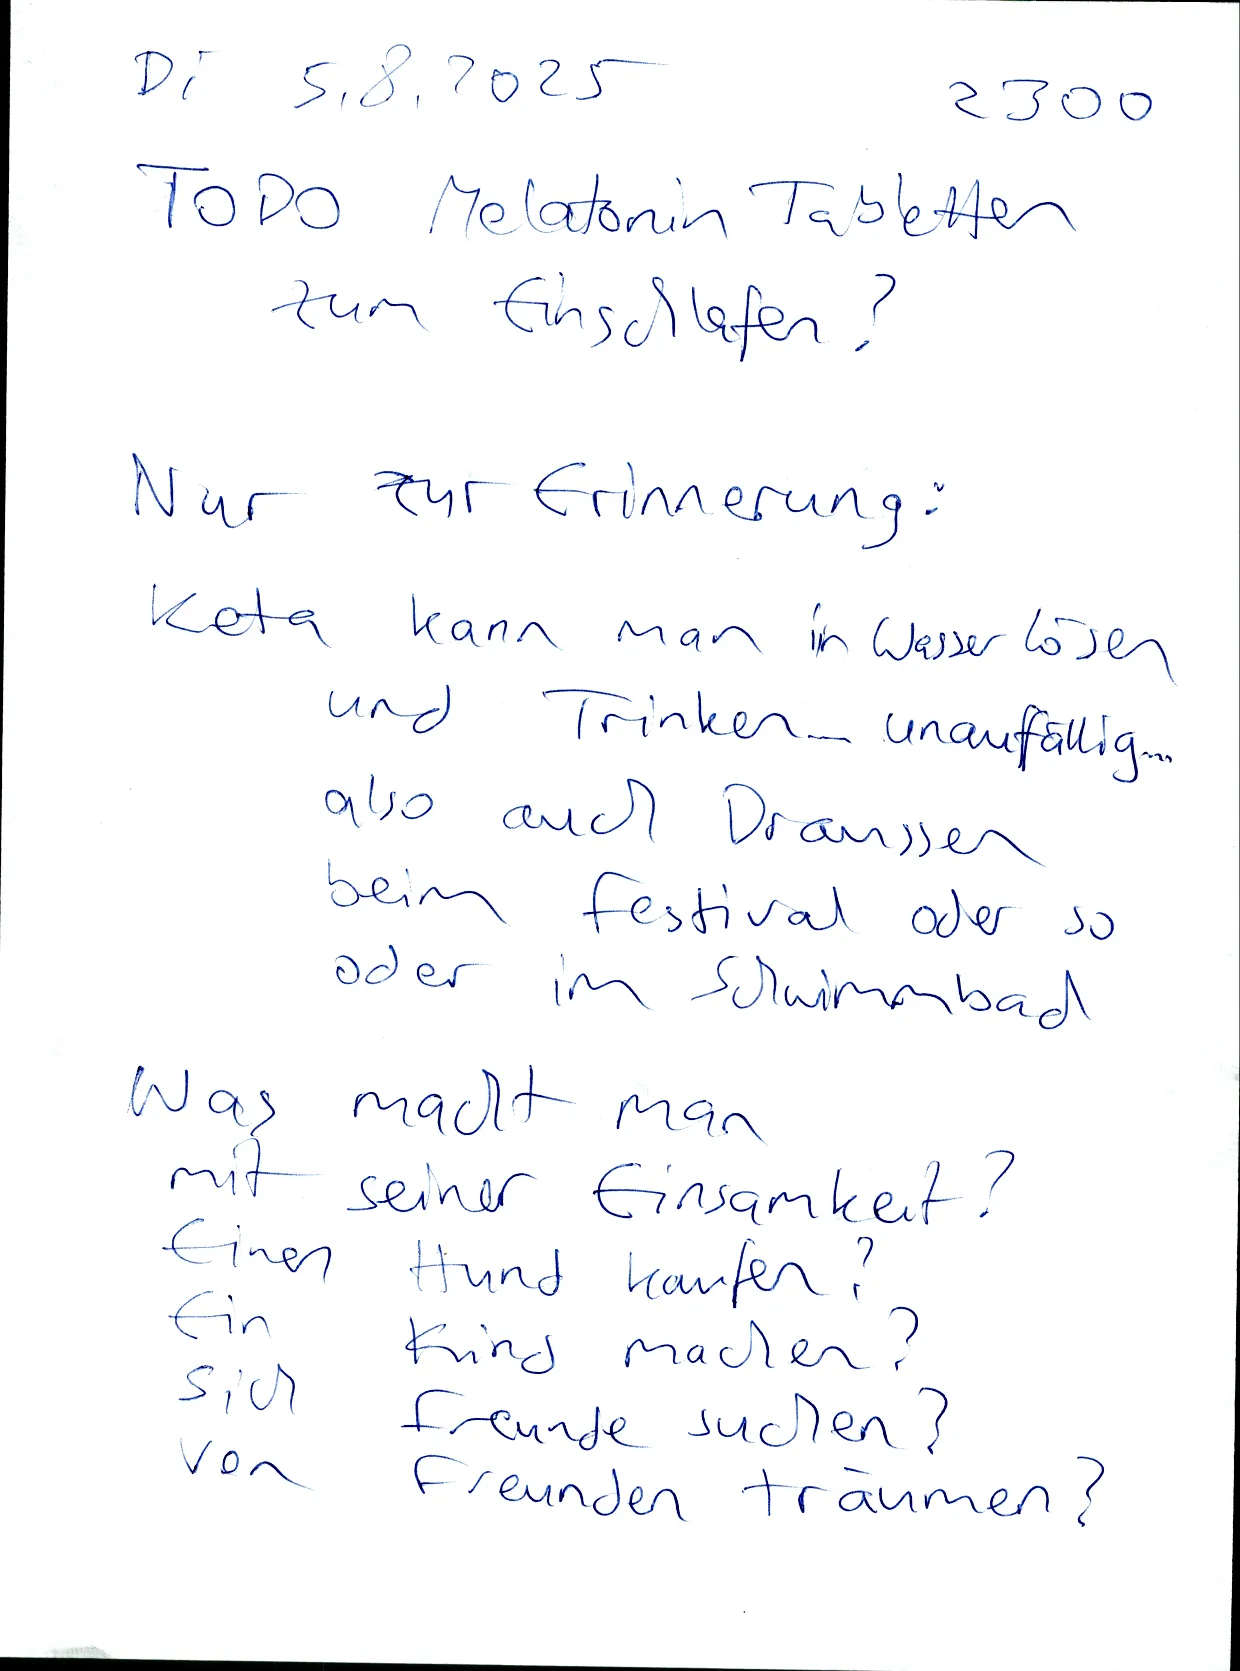 Di 5.8.2025 2300
TODO Melatonin Tabletten
zum Einschlafen?
Nur zur Erinnerung:
Keta kann man in Wasser lösen
und Trinken... unauffällig...
also auch Draussen
beim Festival oder so
oder im Schwimmbad
Was macht man
mit seiner Einsamkeit?
Einen Hund kaufen?
Ein Kind machen?
Sich Freunde suchen?
Von Freunden träumen?